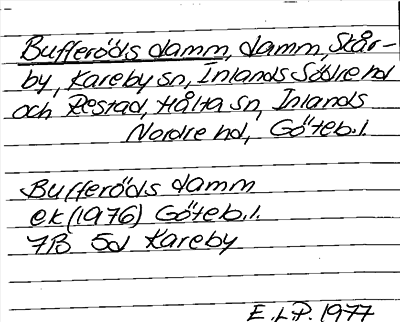 Bufferöds damm, damm, Skår-
by, Kareby sn, Inlands Södre hd
och Restad, Hålta sn, Inlands
Nordre hd, Göteb.l.
Bufferöds damm
ek (1976) Göteb.l.
7B 5d Kareby
E.LP. 1977